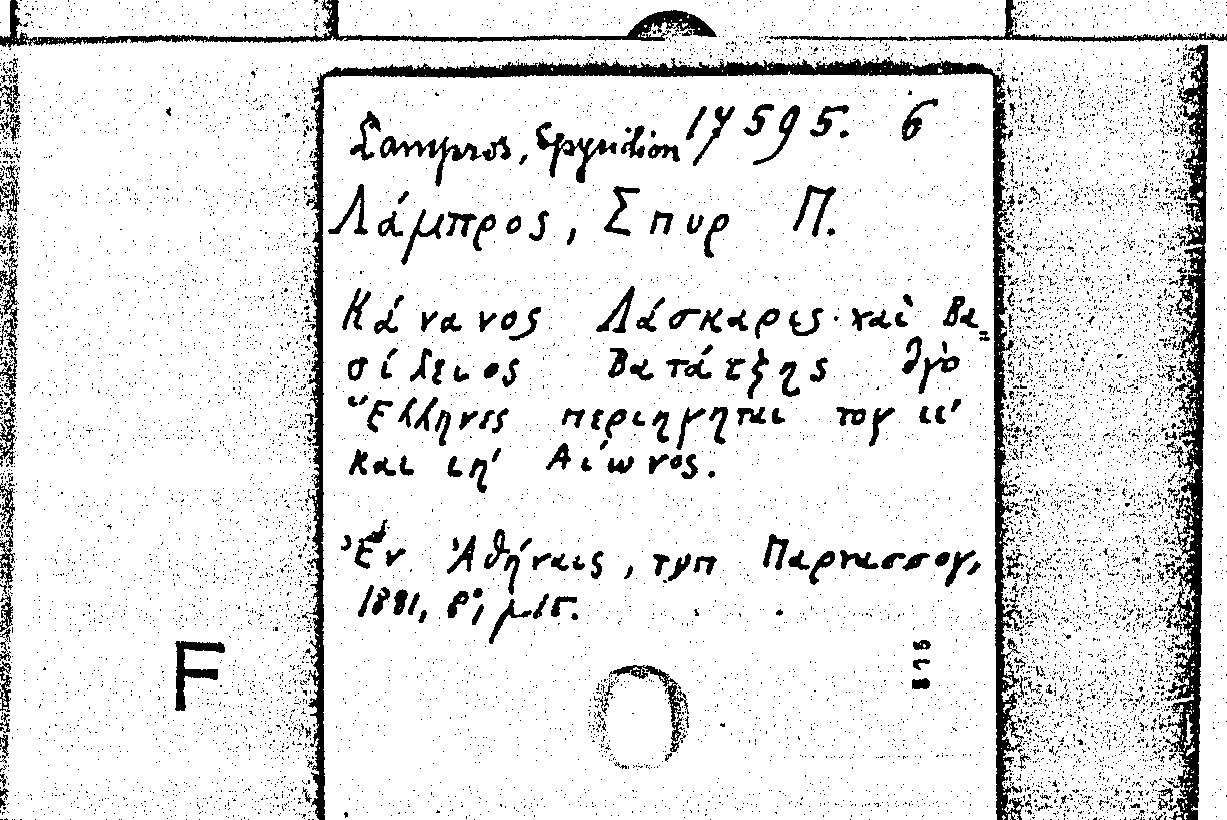 Lampros, Spyridion 17595. 6
Λάμπρος, Σπυρ Π.
Κάνανος Λάσκαρις καὶ Βα=
σίλειος Βατάτζης δύο
Ἕλληνες περιηγηται του ιε'
και ιη' Αἰώνος.
Ἐν Ἀθήναις, τυπ Παρνασσου,
1881, 8°,
F